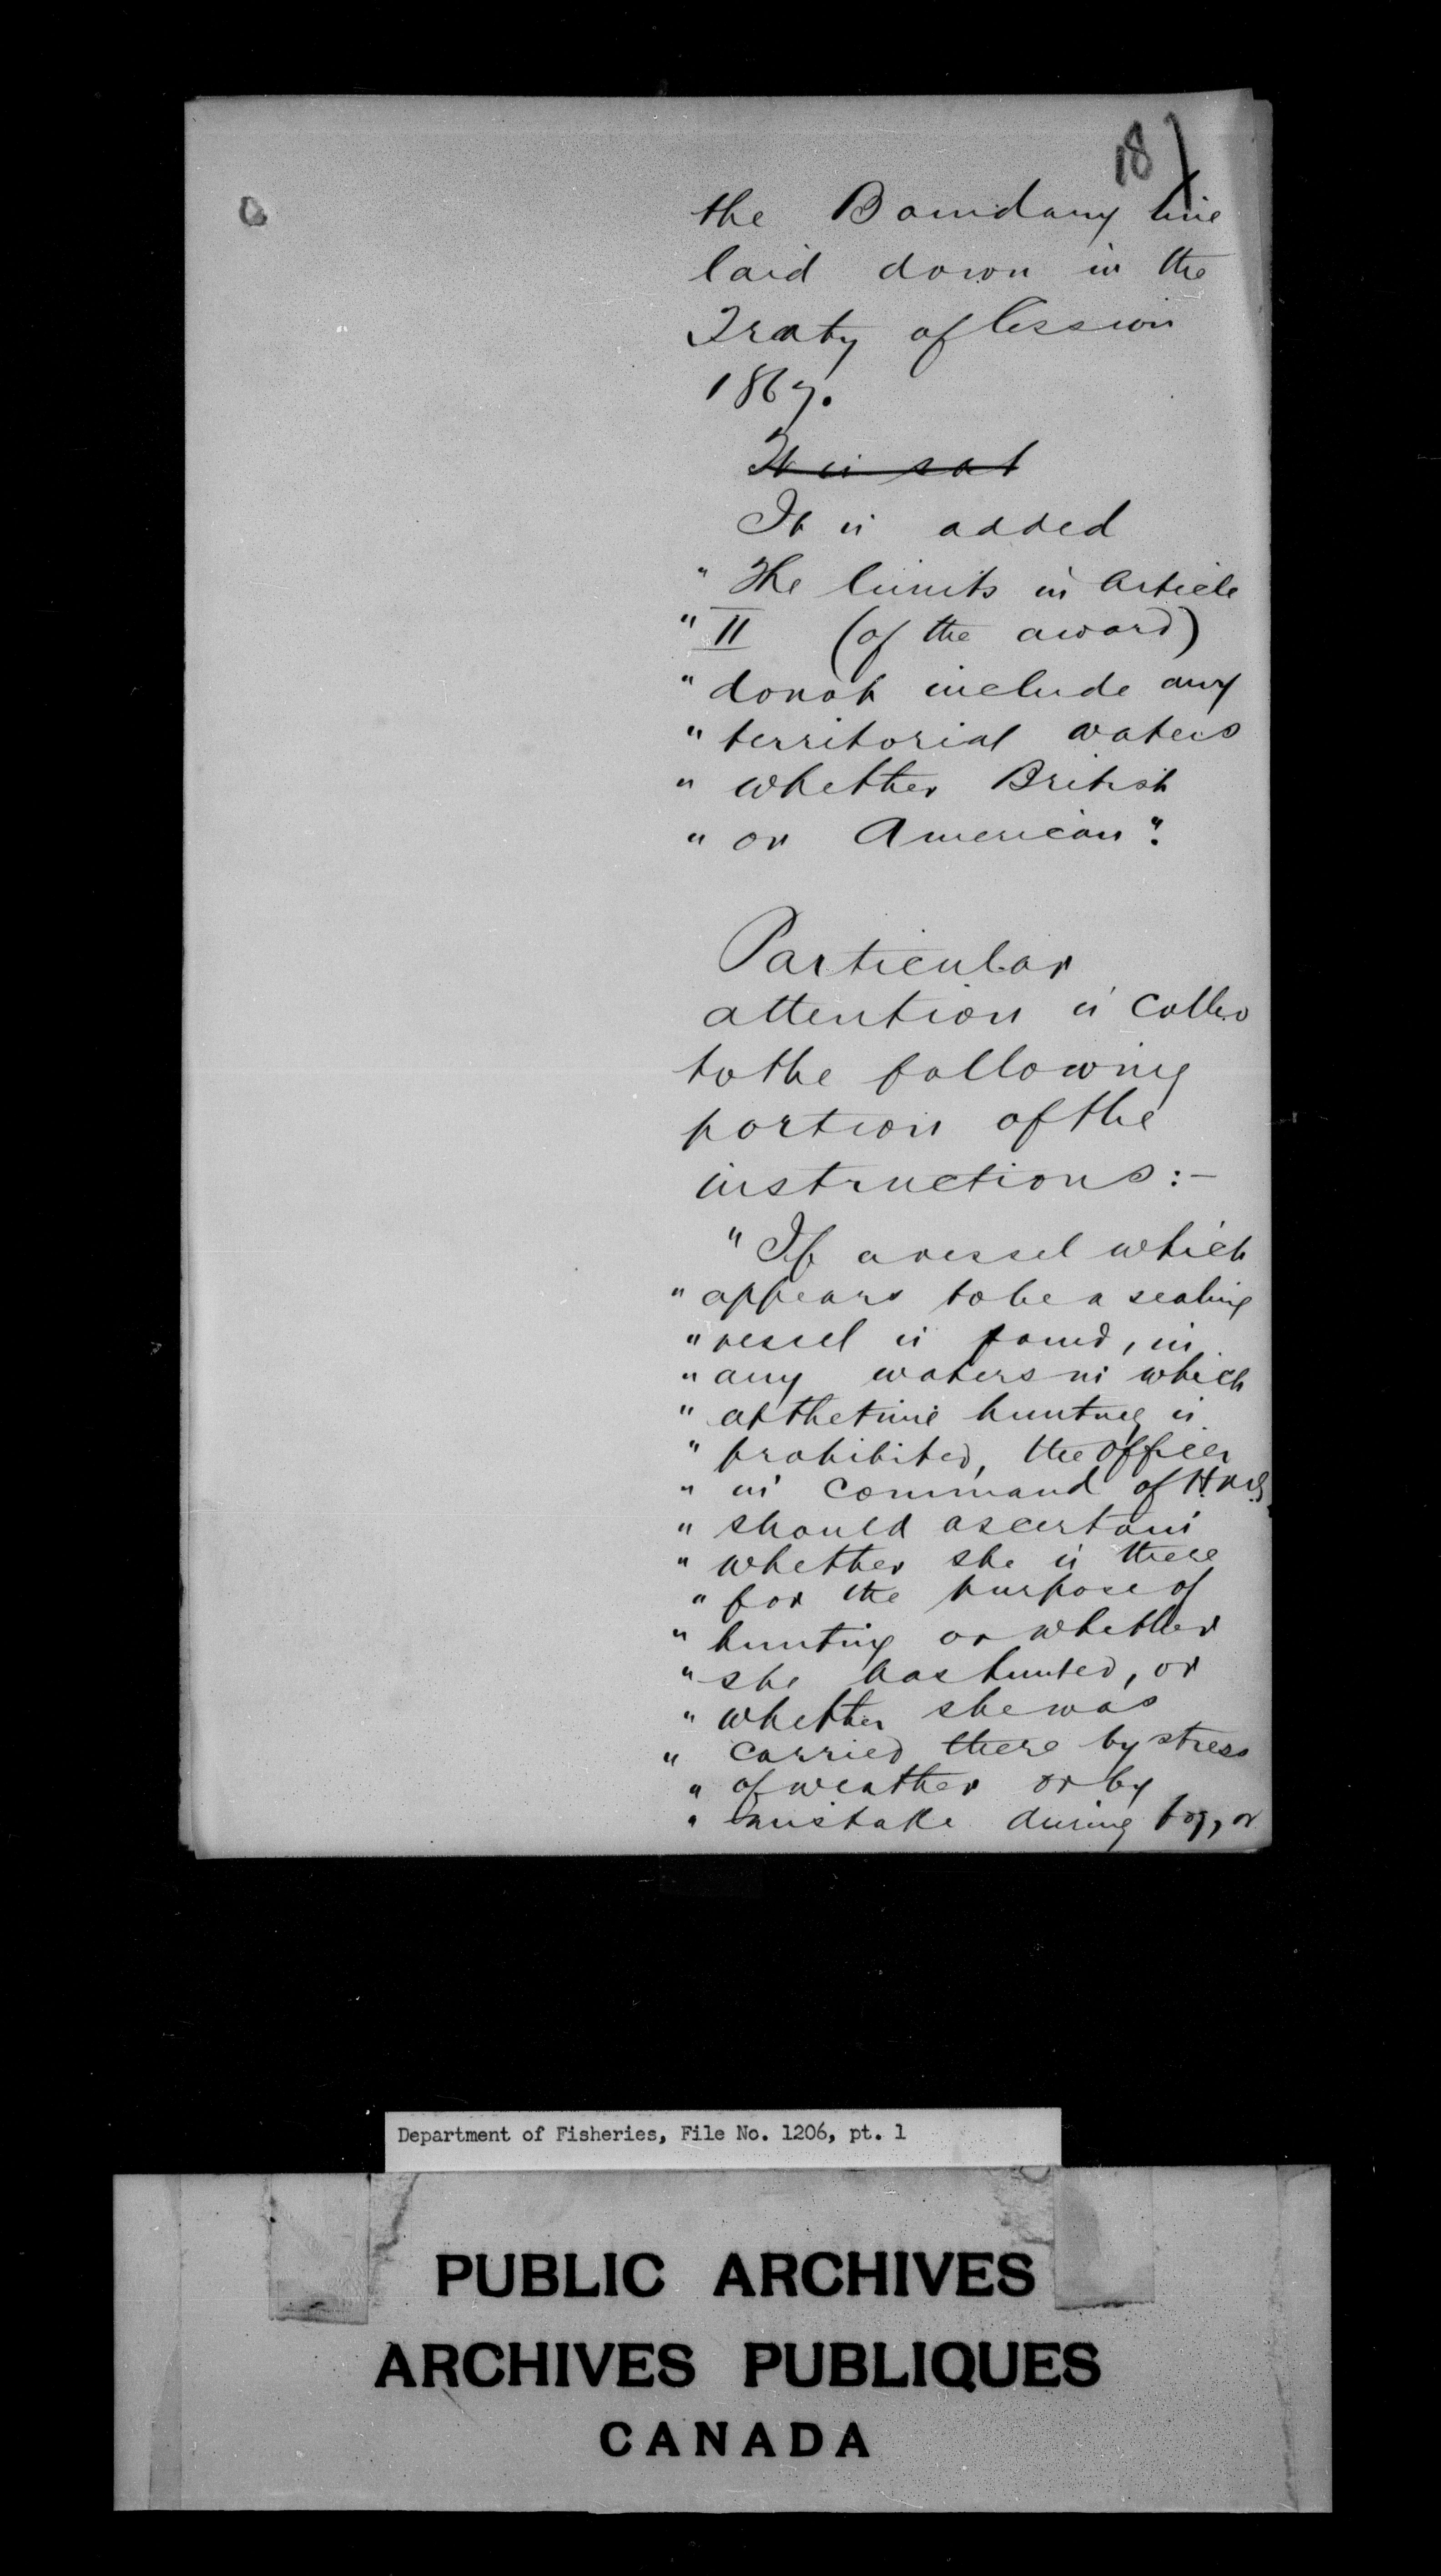 18)
the Boundary line
laid down in the
Treaty of Cession
1867.
It is sat
It is added
" The limits in Article
" II (of the award)
" do not include any
" territorial waters
" whether British
" or American".
Particular
attention is called
to the following
portion of the
instructions:-
" If a vessel which
" appears to be a sealing
" vessel is found, in
" any waters in which
" at the time hunting is
" prohibited, the officer
" in command of H.M.S.
" should ascertain
" whether she is there
" for the purpose of
" hunting or whether
" she has hunted, or
" whether she was
" carried there by stress
" of weather or by
" mistake during fog, or
Department of Fisheries, File No. 1206, pt. 1
PUBLIC ARCHIVES
ARCHIVES PUBLIQUES
CANADA